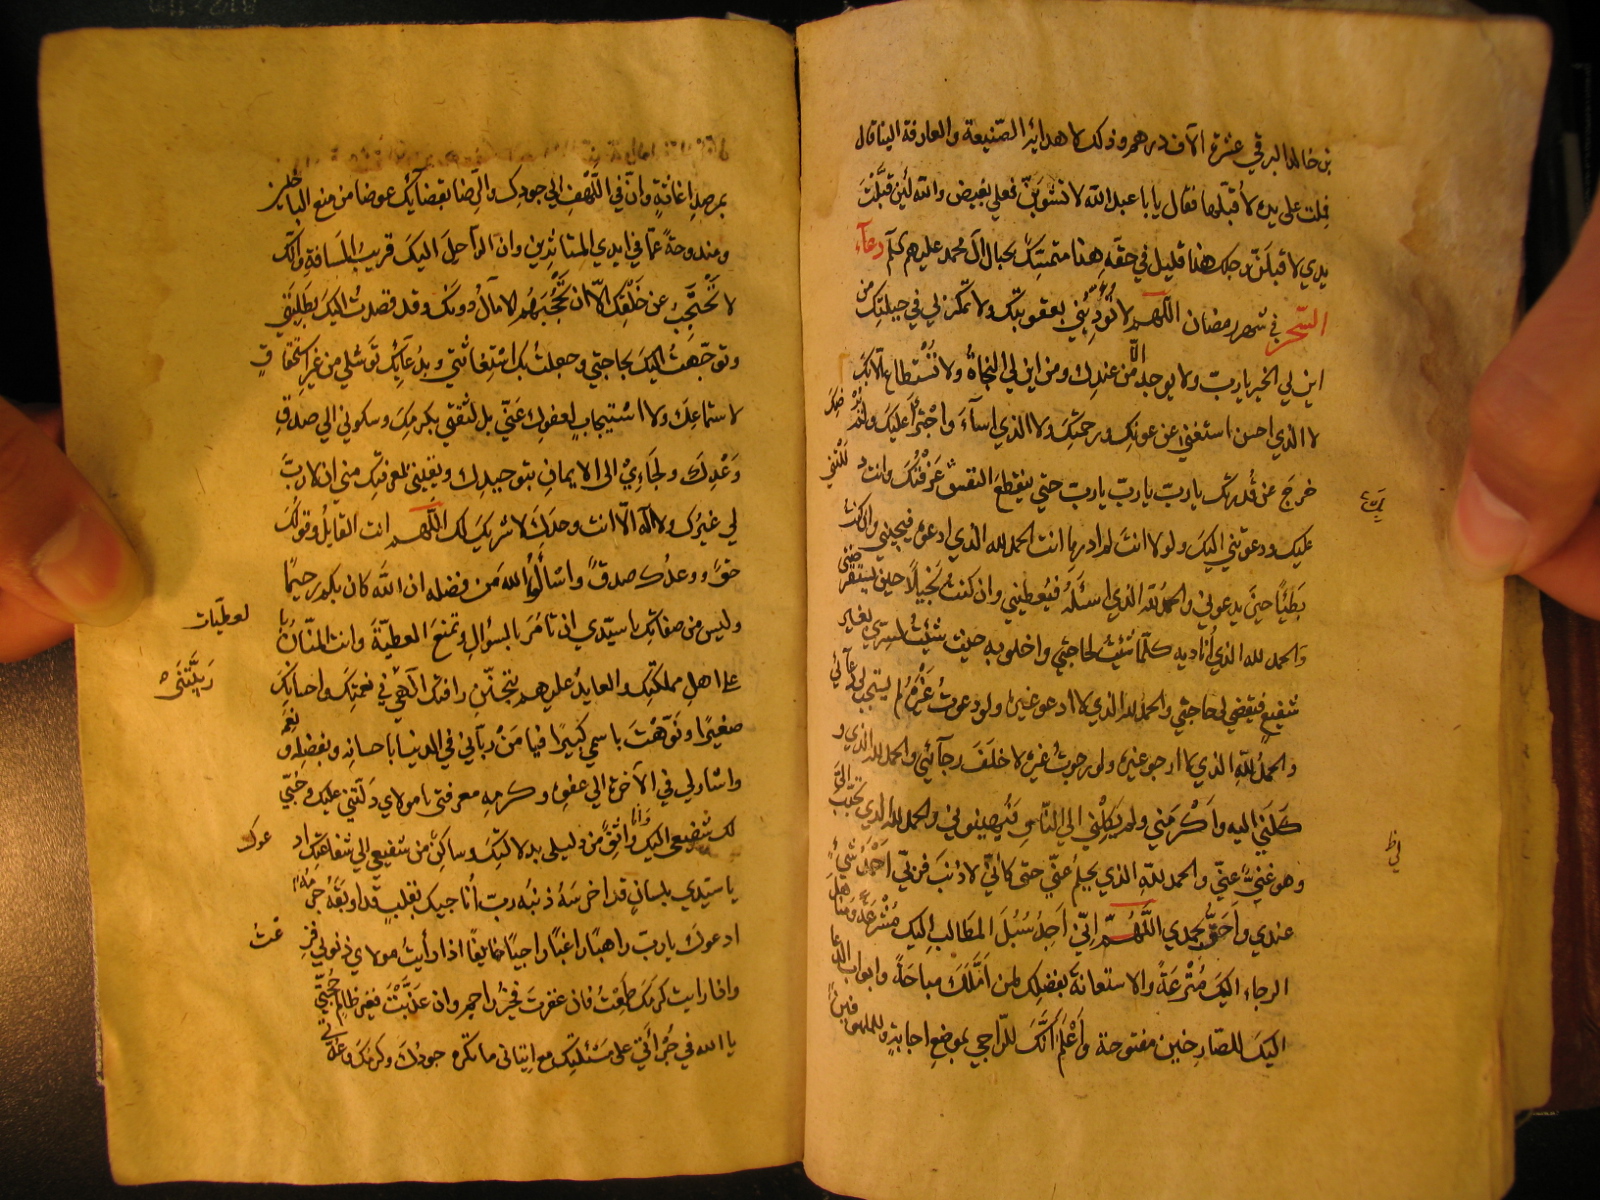 بن خالد البرقي عشرة آلاف درهم وذلك لاهدائه الصنيعة والعارفة الينا قال
فملت على يده لأقبلها فقال يا با عبد الله لا تشوبن فعلي بغيض والله لئن قبلت
يدي لاقبلن رجلك هذا قليل في حقه هذا متمسك بحبال آل محمد عليهم السلم دعآء
السحر في شهر رمضان اللهم لا تؤدبني بعقوبتك ولا تمكر لي في حيلتك من
اين لي الخير يا رب ولا يوجد الا من عندك ومن اين لي النجاة ولا تستطاع الا بك
لا الذي احسن استغنى عن عونك ورحمتك ولا الذي اساء واجترأ عليك ولم يرضك
خرج عن قدرتك يا رب يا رب يا رب حتى ينقطع النفس عرفتك وانت دللتني
عليك ودعوتني اليك ولولا انت لم ادر ما انت الحمد لله الذي ادعوه فيجيبني وان كنت
بطيئا حين يدعوني والحمد لله الذي اسئله فيعطيني وان كنت بخيلا حين يستقرضني
والحمد لله الذي أناديه كلما شئت لحاجتي واخلو به حيث شئت لسري بغير
شفيع فيقضي لي حاجتي والحمد لله الذي لا ادعو غيره ولو دعوت غيره لم يستجب لي دعآئي
والحمد لله الذي لا ارجو غيره ولو رجوت غيره لا خلف رجآئي والحمد لله الذي و
كلني اليه وأكرمني ولم يكلني الى الناس فيهينوني والحمد لله الذي تحبب الي
وهو غني عني والحمد لله الذي يحلم عني حتى كأني لا ذنب لي فربي احمد شيء
عندي وأحق بحمدي اللهم إني أجد سبل المطالب اليك مشرعة ومناهل
الرجاء اليك مترعة والاستعانة بفضلك لمن أملك مباحة وابواب الدعاء
اليك للصارخين مفتوحة وأعلم أنك للراجي بموضع اجابة وللملهوفين
بمرصد اغاثة وان في اللهف الى جودك والرضا بقضآئك عوضا من منع الباخلين
ومندوحة عما في ايدي المستاثرين وان الراحل اليك قريب المسافة وانك
لا تحتجب عن خلقك الا ان تحجبهم الامال دونك وقد قصدت اليك بطلبتي
وتوجهت اليك بحاجتي وجعلت بك استغاثتي وبدعآئك توسلي من غير استحقاق
لاستماعك ولا استيجاب لعفوك عني بل لثقتي بكرمك وسكوني الى صدق
وعدك ولجاءي الى الايمان بتوحيدك ويقيني بمعرفتك مني ان لا رب
لي غيرك ولا اله الا انت وحدك لا شريك لك اللهم انت القايل وقولك
حق ووعدك صدق واسألوا الله من فضله ان الله كان بكم رحيما
وليس من صفاتك يا سيدي ان تامر بالسؤال وتمنع العطية وانت المنان با
لعطيات
على اهل مملكتك والعايد عليهم بتحنن رافتك الهي في نعمتك واحسانك
ربيتني
صغيرا ونوهت باسمي كبيرا فيا من رباني في الدنيا باحسانه وبفضله ونعمه
واشار لي في الآخرة الى عفوه وكرمه معرفتي يا مولاي دلتني عليك وحبي
لك شفيعي اليك وانا واثق من دليلي بدلالتك وساكن من شفيعي الى شفاعتك اد
عوك
يا سيدي بلسان قد اخرسه ذنبه رب أناجيك بقلب قد اوبقه جرمه
ادعوك يا رب راهبا راغبا راجيا خايفا اذا رأيت مولاي ذنوبي فز
عت
واذا رايت كرمك طمعت فان غفرت فخير راحم وان عذبت فغير ظالم حجتي
يا الله في جرأتي على مسئلتك مع اتياني ما تكره جودك وكرمك وعدتي